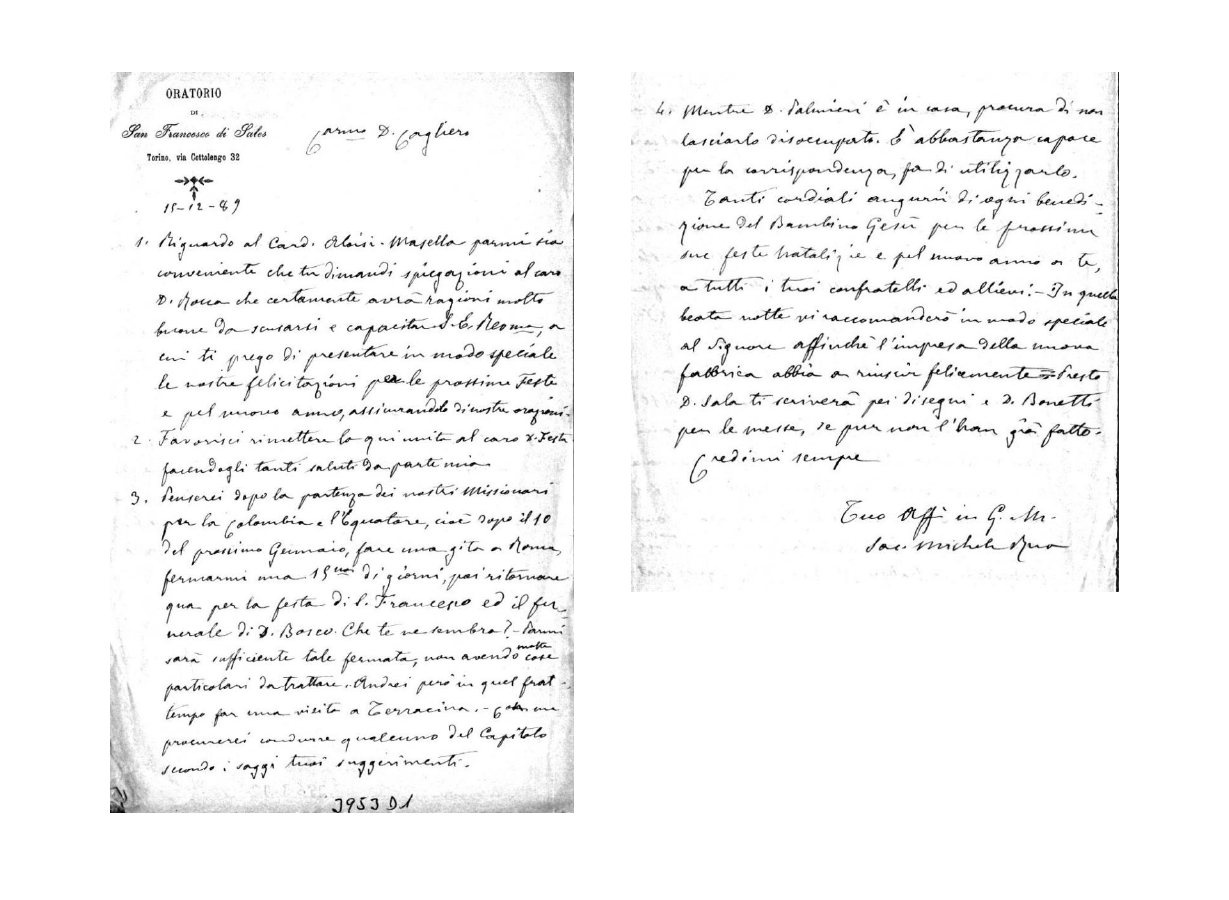 ORATORIO
DI
San Francesco di Sales
Torino, via Cottolengo 32
Carmo D. Cagliero
15-12-89
1. Riguardo al Card. Aloisi-Masella parmi sia
conveniente che tu dimandi spiegazioni al caro
D. Rocca che certamente avrà ragioni molto
buone da scusarci e capacitar S. E. Revma, a
cui ti prego di presentare in modo speciale
le nostre felicitazioni per le prossime Feste
e pel nuovo anno, assicurandolo di nostre orazioni.
2. Favorisci rimettere la qui unita al caro D. Festa
facendogli tanti saluti da parte mia
3. Penserei dopo la partenza dei nostri Missionari
per la Colombia e l'Equatore, cioè dopo il 10
del prossimo Gennaio, fare una gita a Roma,
fermarmi una 15na di giorni, poi ritornare
qua per la festa di S. Francesco ed il fu-
nerale di D. Bosco. Che te ne sembra? - Parmi
sarà sufficiente tale fermata, non avendo molte cose
particolari da trattare. Andrei però in quel frat-
tempo far una visita a Terracina. - Con me
procurerei condurre qualcuno del Capitolo
secondo i saggi tuoi suggerimenti.
3953 D1
4. Mentre D. Palmieri è in casa, procura di non
lasciarlo disoccupato. È abbastanza capace
per la corrispondenza, fa di utilizzarlo.
Tanti cordiali augurii di ogni benedi-
zione del Bambino Gesù per le prossime
sue feste natalizie e pel nuovo anno a te,
a tutti i tuoi confratelli ed allievi. - In quella
beata notte vi raccomanderò in modo speciale
al Signore affinchè l'impresa della nuova
fabbrica abbia a riuscir felicemente = Presto
D. Sala ti scriverà pei disegni e D. Bonetti
per le messe, se pur non l'han già fatto.
Credimi sempre
Tuo Aff in G. M.
Sac. Michele Rua